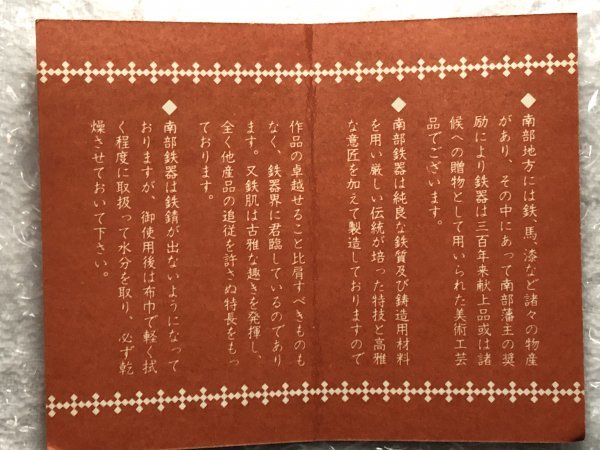 ◆南部地方には鉄、馬、漆など諸々の物産
があり、その中にあって南部藩主の奨
励により鉄器は三百年来献上品或は諸
候への贈物として用いられた美術工芸
品でございます。
◆南部鉄器は純良な鉄質及び鋳造用材料
を用い厳しい伝統が培った特技と高雅
な意匠を加えて製造しておりますので
作品の卓越せること比肩すべきものも
なく、鉄器界に君臨しているのであり
ます。又鉄肌は古雅な趣きを発揮し、
全く他産品の追従を許さぬ特長をもっ
ております。
◆南部鉄器は鉄錆が出ないようになって
おりますが、御使用後は布巾で軽く拭
く程度に取扱って水分を取り、必ず乾
燥させておいて下さい。